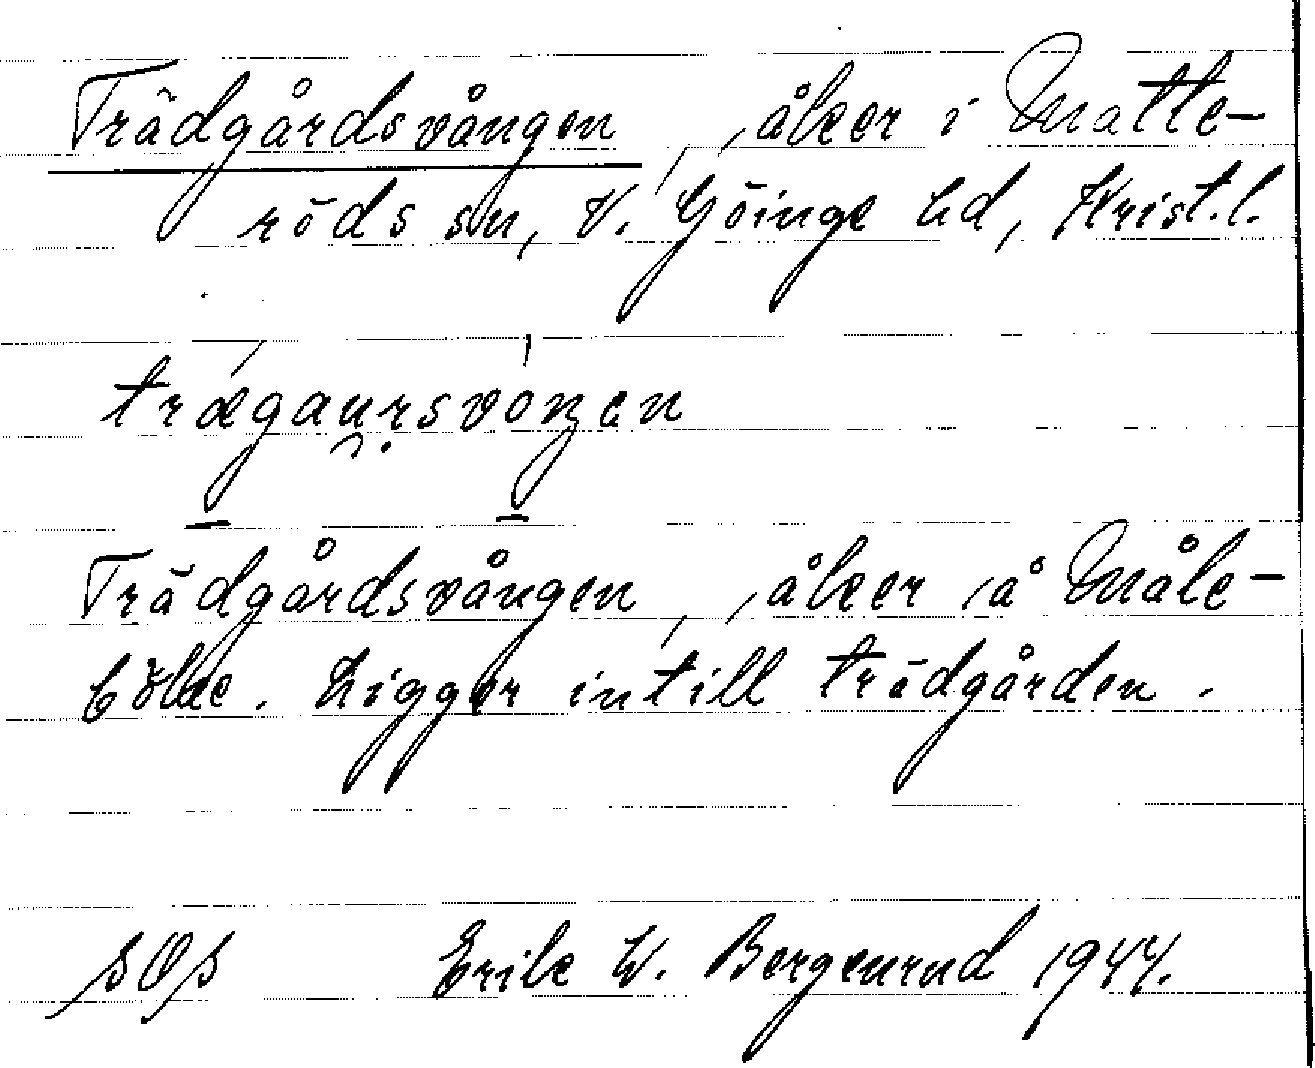 Trädgårdsvången, åker i Matte-
röds sn, V. Göinge hd, Krist.l.
trægau̯rsvoŋen
Trädgårdsvången, åker å Måle-
bölke. Ligger intill trädgården.
SOS Erik W. Bergenrud 1944.